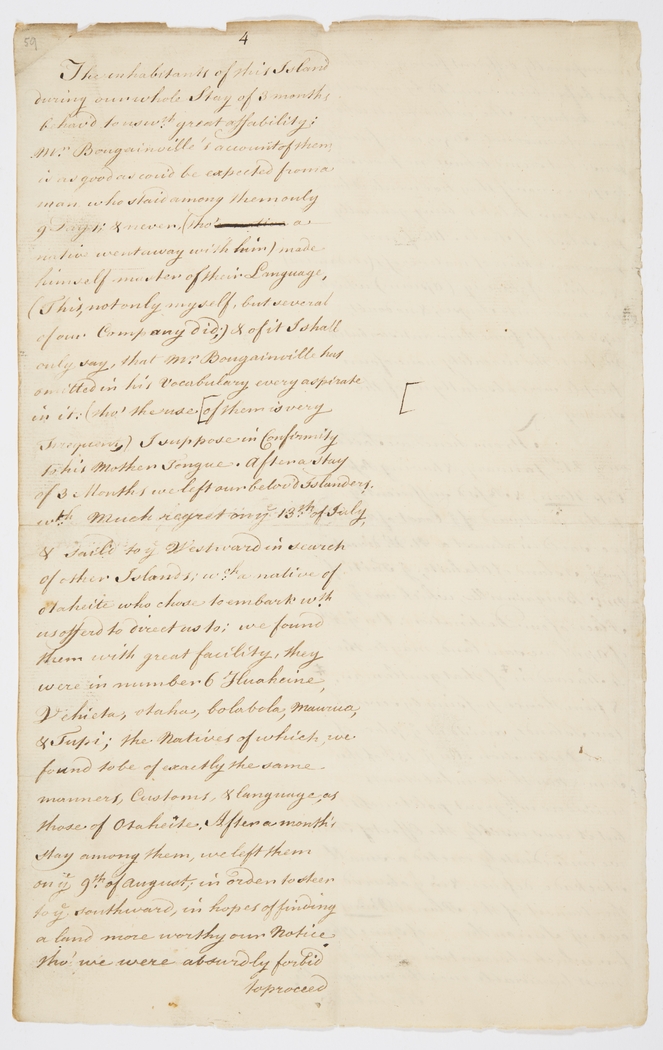 59
4
The inhabitants of this Island
during our whole Stay of 3 months
behavd to us wth great affability;
Mr. Bougainville's account of them
is as good as coud be expected from a
man who staid among them only
9 Days; & never, (tho' a
native went away with him) made
himself master of their Language,
(This, not only myself, but several
of our Company did;) & of it I shall
only say, that Mr. Bougainville has
omitted in his Vocabulary every aspirate
in it: (tho' the use [of them is very [
frequent,) I suppose in Confirmity
to his Mother Tongue. After a stay
of 3 Months we left our belovd Islanders,
wth Much regret on ye 13th of July
& saild to ye Westward in search
of other Islands; wch a native of
Otaheite who chose to embark wth
us offerd to direct us to; we found
them with great facility, they
were in number 6 Huaheine,
Ulietea, Otaha, bolabola, Maurua,
& Tupi; the Natives of which, we
found to be of exactly the same
manners, Customs, & language, as
those of Otaheite. After a month's
stay among them, we left them
on ye 9th of August; in order to steer
to ye southward, in hopes of finding
a land more worthy our Notice
tho' we were absurdly forbid
to proceed